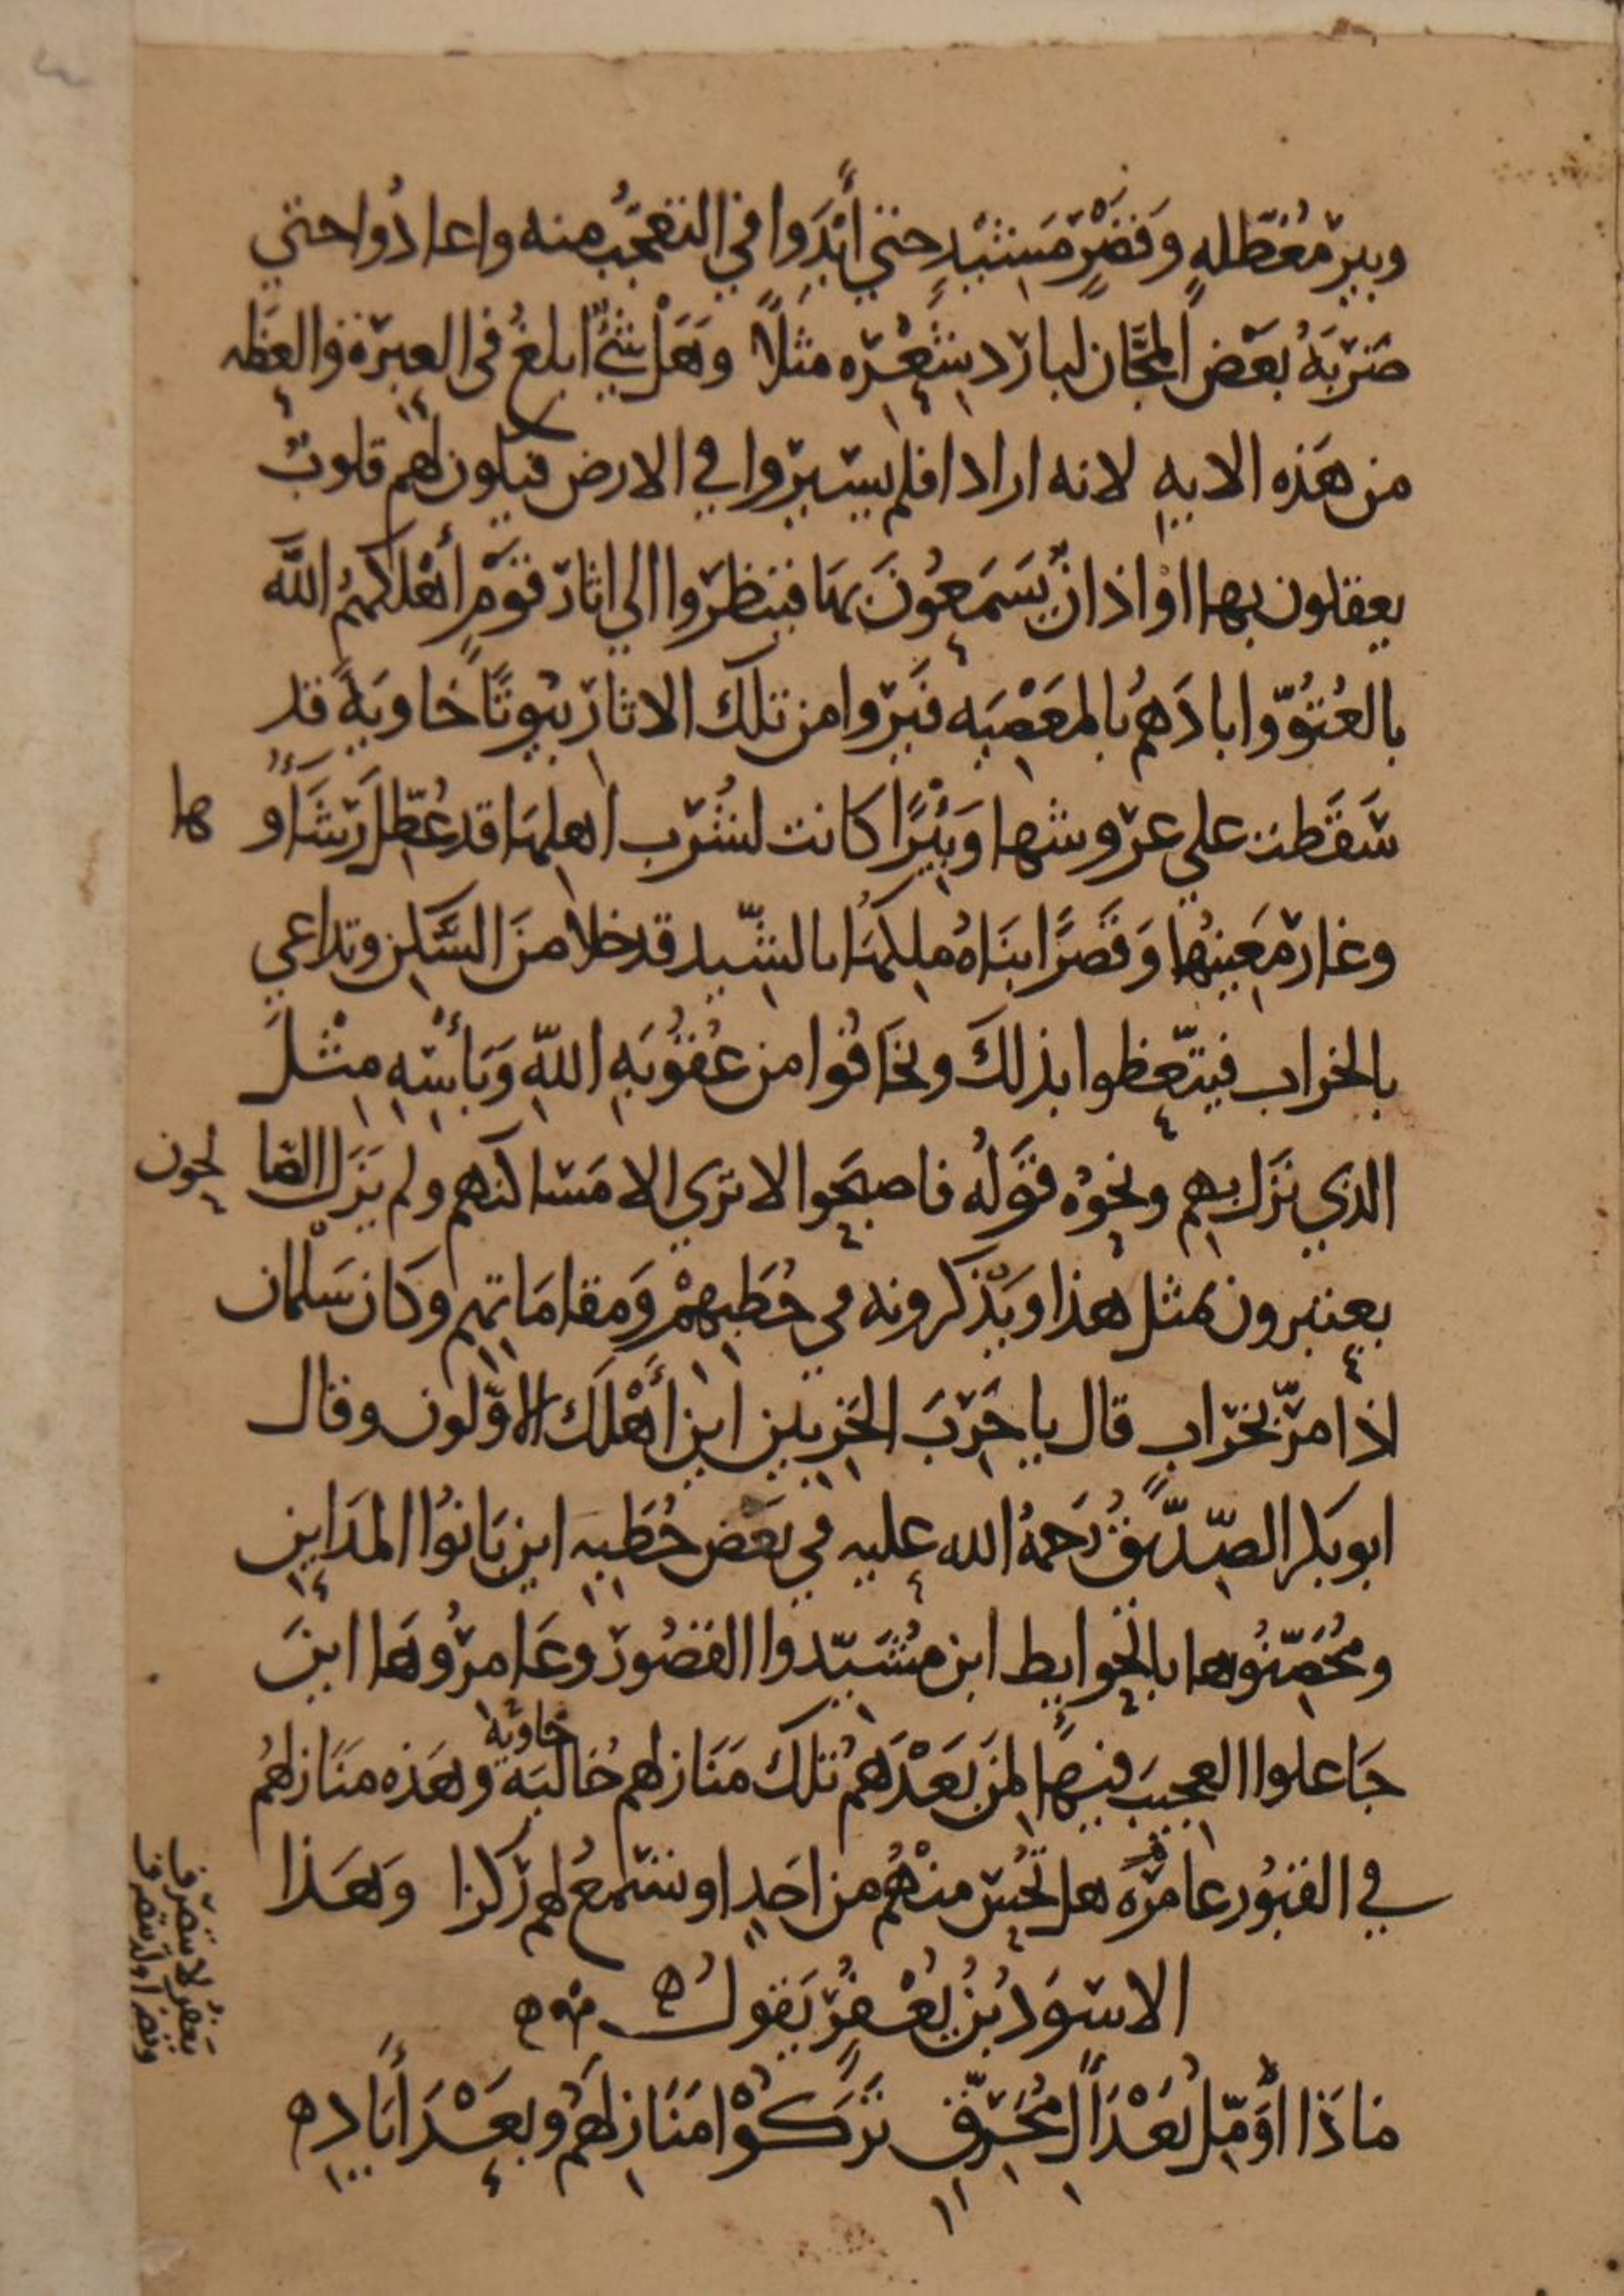 وبير مُعَطّلهٍ وَقصْرٍ مَشِيْدٍ حتي أَبْدَوا في التعَجّبُ منه واعادُوا حتي
ضَربَهُ بَعْض المُجَّان لبارد شِعْره مثلًا وهَلْ شَيءٌ ابلغُ في العبرَة والعظه
من هَذه الايه لانه اراد افلم يسيروا في الارض فيكون لهم قلوبٌ
يعقلون بها او اذانٌ يَسَمَعُونَ بهَا فينظروا الي اثار قوْمٍ أَهْلكهمُ الله
بالعُتُوّ وابادَهُمُ بالمعَصْيَه فيَروا من تلك الاثار بيُوتًا خَاويَةً قد
سَقَطت علي عروشها وَبِئْرًا كانت لشُرب اهلهَا قد عُطّل رشَأو ها
وغار مَعِينُها وَقَصرًا بنَاهُ ملِكهَا بالشّيد قد خلا منَ السَّكن وتداعي
بالخراب فيتّعظوا بذلكَ ويخَافُوا من عُقوُبَهِ اللهِ وَبَأسِهِ مِثْلَ
الذي نَزَل بهِم ونحوُه قوَلهُ فاصبحَوا لا تري الا مَساكنهم ولم يَزَل الصّا لحون
يعتبرون بمثل هذا ويَذكرونه في خُطَبِهمْ وَمقامَاتِهم وكَان سَلْمان
اذا مرّ بخرَابٍ قال يا خَرِبَ الخَرِبِين اين أَهْلكَ الاوّلون وقال
ابو بَكر الصِّدّيقُ رَحمهُ الله عليه في بَعْض خُطَبِه اين بَانوُا المدَاين
ومُحَصِّنُوها بالحَوايط اين مُشَيّدوا القصُور وعَامرُوهَا اينَ
جَاعلوا العجِيبَ فيهَا لمنَ بَعْدَهم تلك مَنَازلهم خَاليَة خاوية وهَذه منَازلهُم
في القبُور عامرَه هل تُحِسّ منْهُم من احَدٍ او تسْمعُ لهم ركزا وَهَذا
الاسوَد بْنُ يُعْفُرَ يَقول
مَاذَا اؤَمّل بُعَدْ آلِ مُحَرِّقٍ تَرَكُوْا مَنَازلَهُم وبعَدْ أيَادِ
يَعفرُ لا ينصَرف
ويُعفر اولا ينصرف